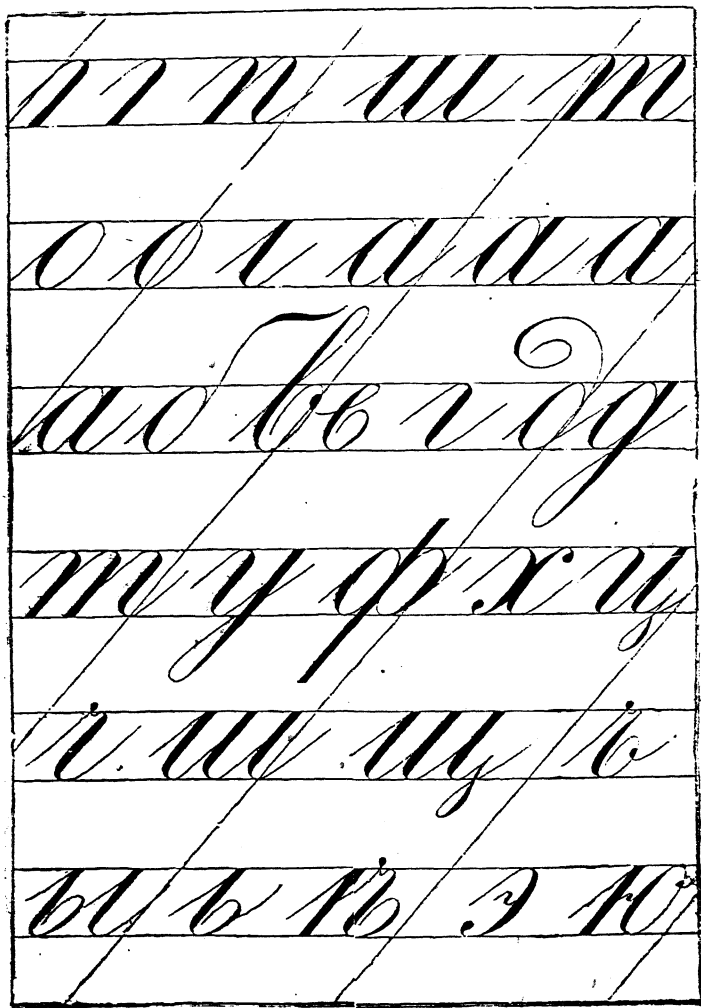 п ш т
о о а а а
а о б в г д д
т у ф х ц
ч ш щ ъ
ы ь ѣ э ю